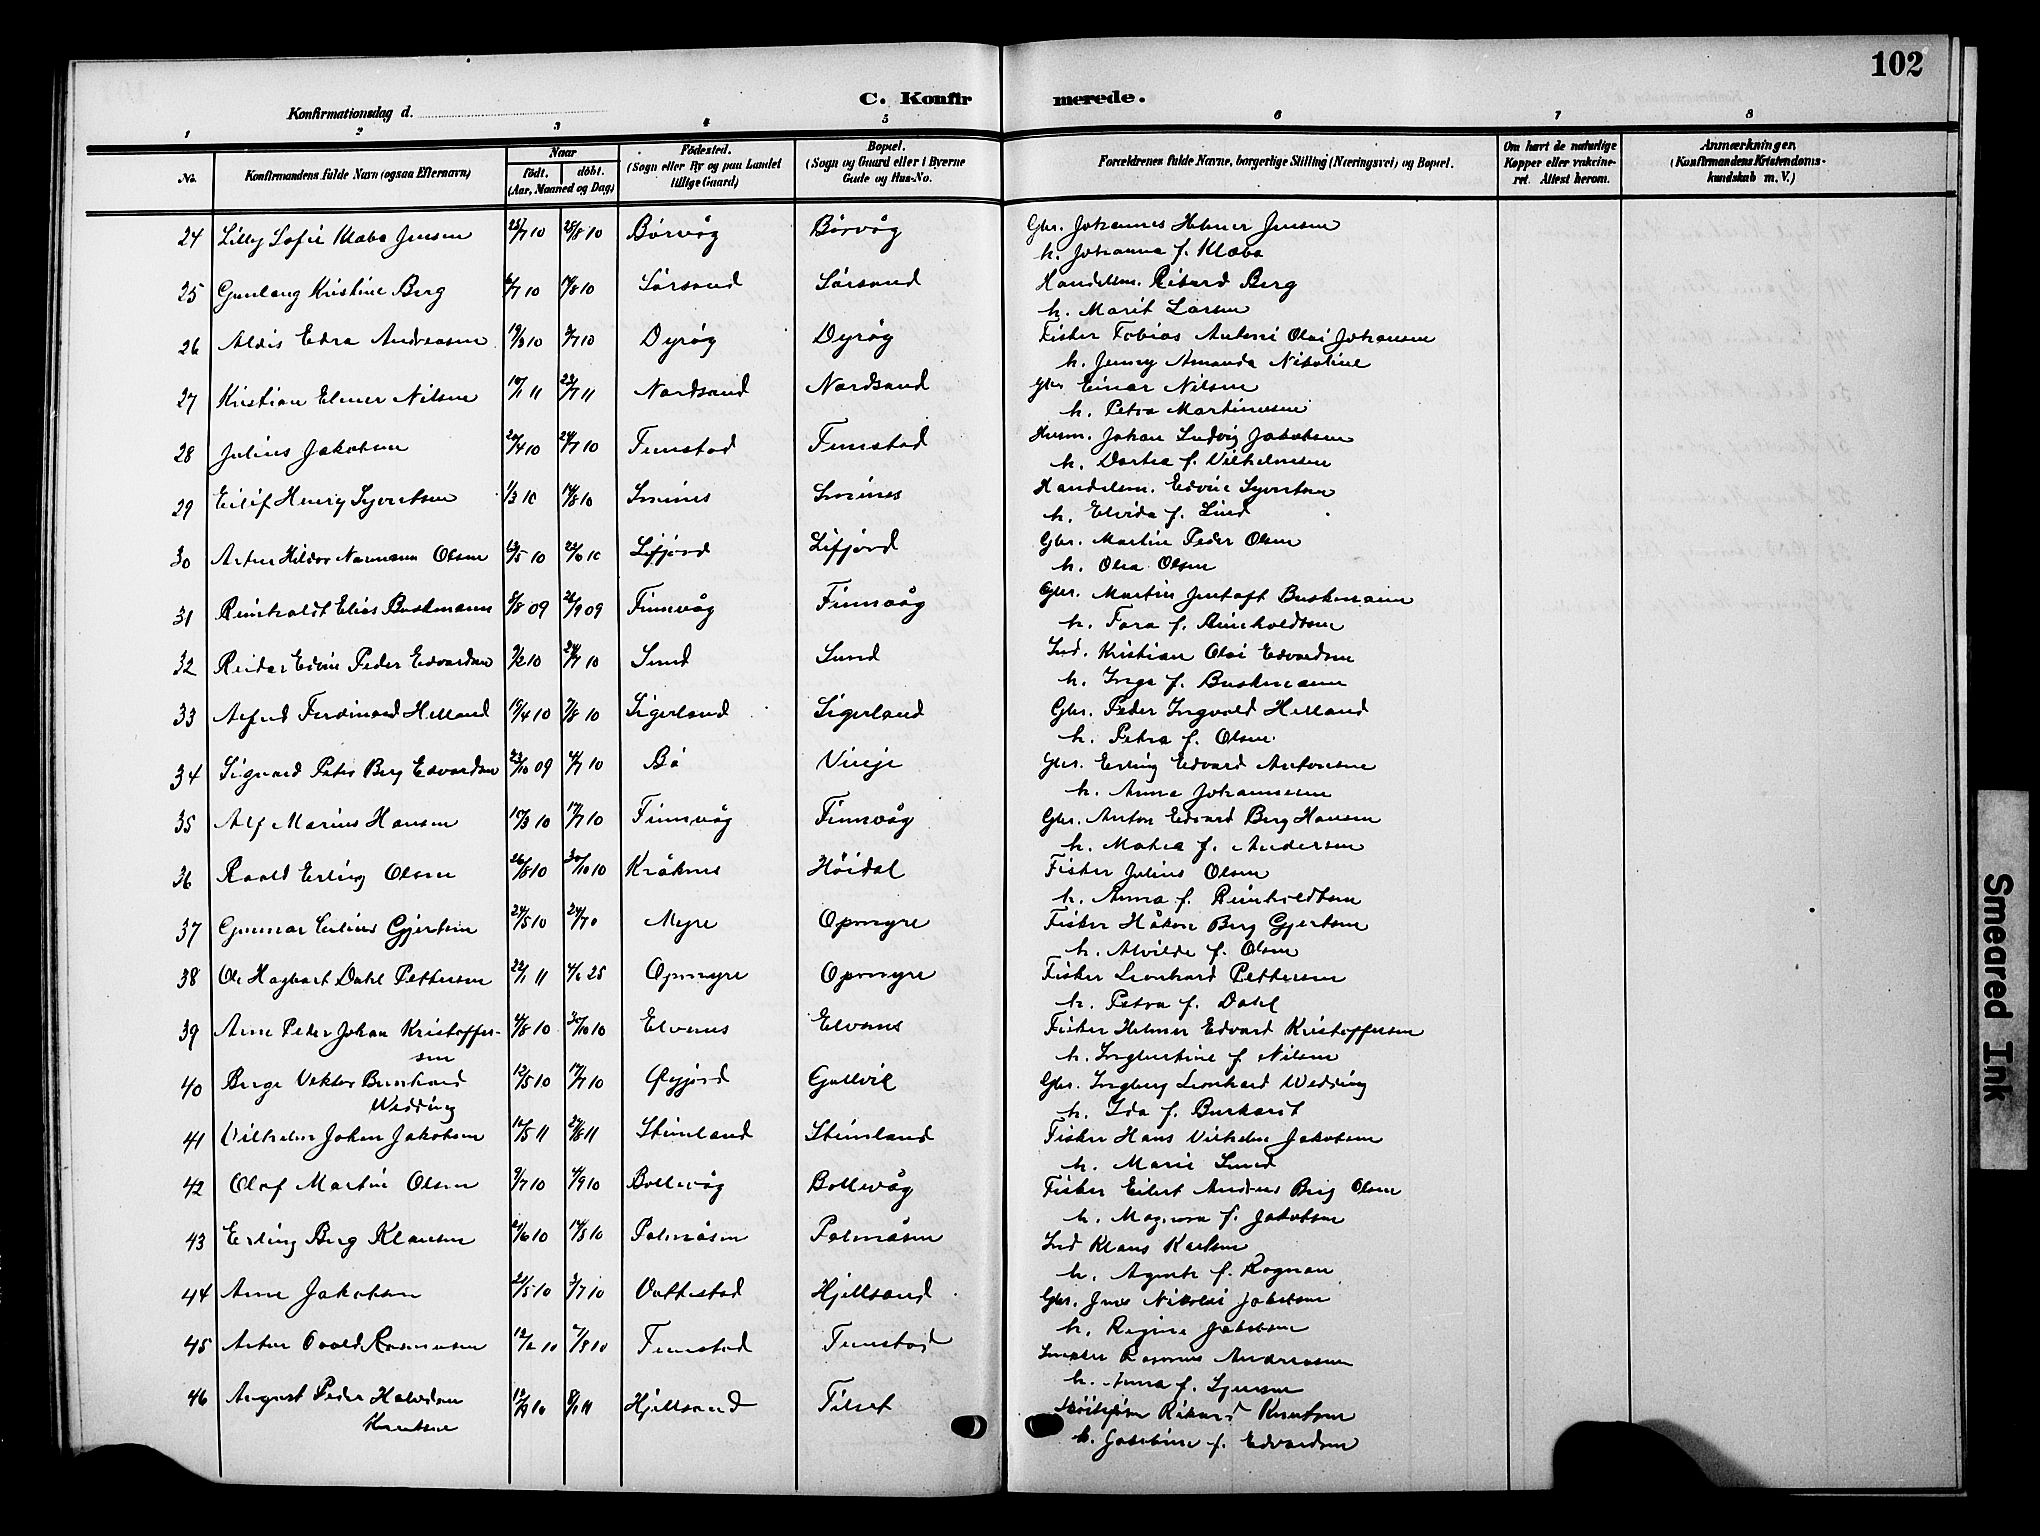 102
C. Konfirmerede.
Konfirmationsdag d.
1 2 3 4 5 6 7 8
No. Konfirmandens fulde Navn (ogsaa Efternavn) Naar født. døbt. (Aar, Maaned og Dag) Fødested. (Sogn eller By og paa Landet tillige Gaard) Bopæl. (Sogn og Gaard eller i Byerne Gade og Hus-No. Forældrenes fulde Navne, borgerlige Stilling (Næringsvei) og Bopæl. Om havt de naturlige Kopper eller vakcineret. Attest herom. Anmærkninger. (Konfirmandens Kristendomskundskab m. V.)
24 Lilly Sofie Klæbo Jensen 10 25/8 10 Børvåg Børvåg Gbr. Johannes Helmer Jensen
h. Johanna f. Klæbo
25 Gunlaug Kristine Berg 10 10 Sørsand Sørsand Handelsm. Rikard Berg
h. Marit Larsen
26 Aldis Edra Andreasen 19/3 10 10 Dyrøy Dyrøy Fisker Tobias Antoni Olai Johansen
h. Jenny Amanda Nikoline
27 Kristian Elmer Nilsen 11 11 Nordsand Nordsand Gbr. Einar Nilsen
h. Petra Martinussen
28 Julius Jakobsen 20/4 10 24/7 10 Tunstad Tunstad Husm. Johan Ludvig Jakobsen
h. Dortea f. Vilhelmsen
29 Eilif Henry Syvertsen 1/3 10 14/8 10 Smines Smines Handelsm. Edvin Syvertsen
h. Elvida f. Lind
30 Artur Hildor Normann Olsen 10 10 Lifjord Lifjord Gbr. Martin Peder Olsen
h. Olea Olsen
31 Reinholdt Elias Buskmann 5/8 09 26/9 09 Finnvåg Finnvåg Gbr. Martin Buskmann
h. Tora f. Reinholdtsen
32 Reidar Edvin Peder Edvardsen 10 24/7 10 Sund Sund Ind. Kristian Olai Edvardsen
h. Inga f. Buskmann
33 Alfred Ferdinand Helland 19/4 10 7/8 10 Sigerland Sigerland Gbr. Peder Ingvald Helland
h. Petra f. Olsen
34 Sigvard Peter Berg Edvardsen 23/10 09 10 Bø Vinje Gbr. Erling Edvard Antonsen
h. Anna Johannesen
35 Alf Marius Hansen 10 17/7 10 Finnvåg Finnvåg Gbr. Anton Edvard Berg Hansen
h. Matea f. Andersen
36 Roald Erling Olsen 26/8 10 30/10 10 Kråknes Høidal Fisker Julius Olsen
h. Anna f. Reinholdtsen
37 Gunnar Gjertsen 24/5 10 Myre Opmyre Fisker Håkon Berg Gjertsen
h. Alvilde f. Olsen
38 Ole Hagbart Dahl Pettersen 22/1 11 25 Opmyre Opmyre Fisker Leonhard Pettersen
h. Petra f. Dahl
39 Arne Peder Johan Kristoffersen 4/8 10 30/10 10 Elvenes Elvenes Fisker Helmer Edvard Kristoffersen
h. Ingbertine f. Nilsen
40 Birger Viktor Bernhard Wedding 12/5 10 17/7 10 Guvik Gbr. Leonhard Wedding
h. Ida f. Burkhardt
41 Vilhelm Johan Jakobsen 11 11 Steinland Steinland Fisker Hans Vilhelm Jakobsen
h. Marie Lund
42 Olaf Martin Olsen 9/7 10 4/9 10 Bollevåg Bollevåg Fisker Eilert Andreas Berg Olsen
h. Magnora f. Jakobsen
43 Erling Berg Klausen 10 14/8 10 Palmåsen Palmåsen Ind Klaus Karlsen
h. Agnete f. Rognan
44 Arne Jakobsen 21/5 10 3/7 10 Vottestad Hjellsand Gbr. Jens Nikolai Jakobsen
h. Regine Jakobsen
45 Artur Osvald Rasmussen 10 10 Tunstad Tunstad Rasmus Andreassen
h. Anna f.
46 August Peder Halvdan Knutsen 12/9 10 8/1 11 Hjellsand Tilset Rikard Knutsen
h. Josefine f. Edvardsen
Smeared Ink